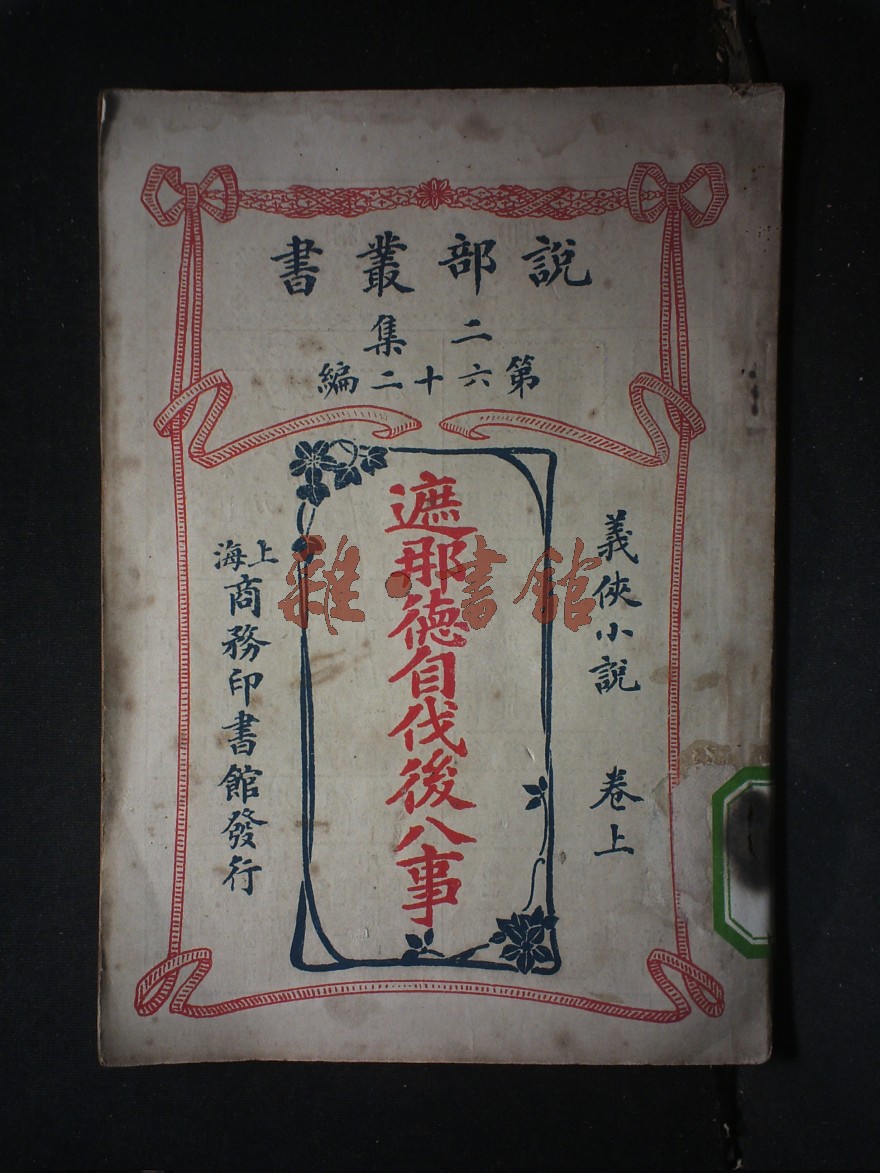 說部叢書
二集
第六十二編
義俠小說 卷上
遮那德自伐後八事
上海商務印書館發行
雜·書館